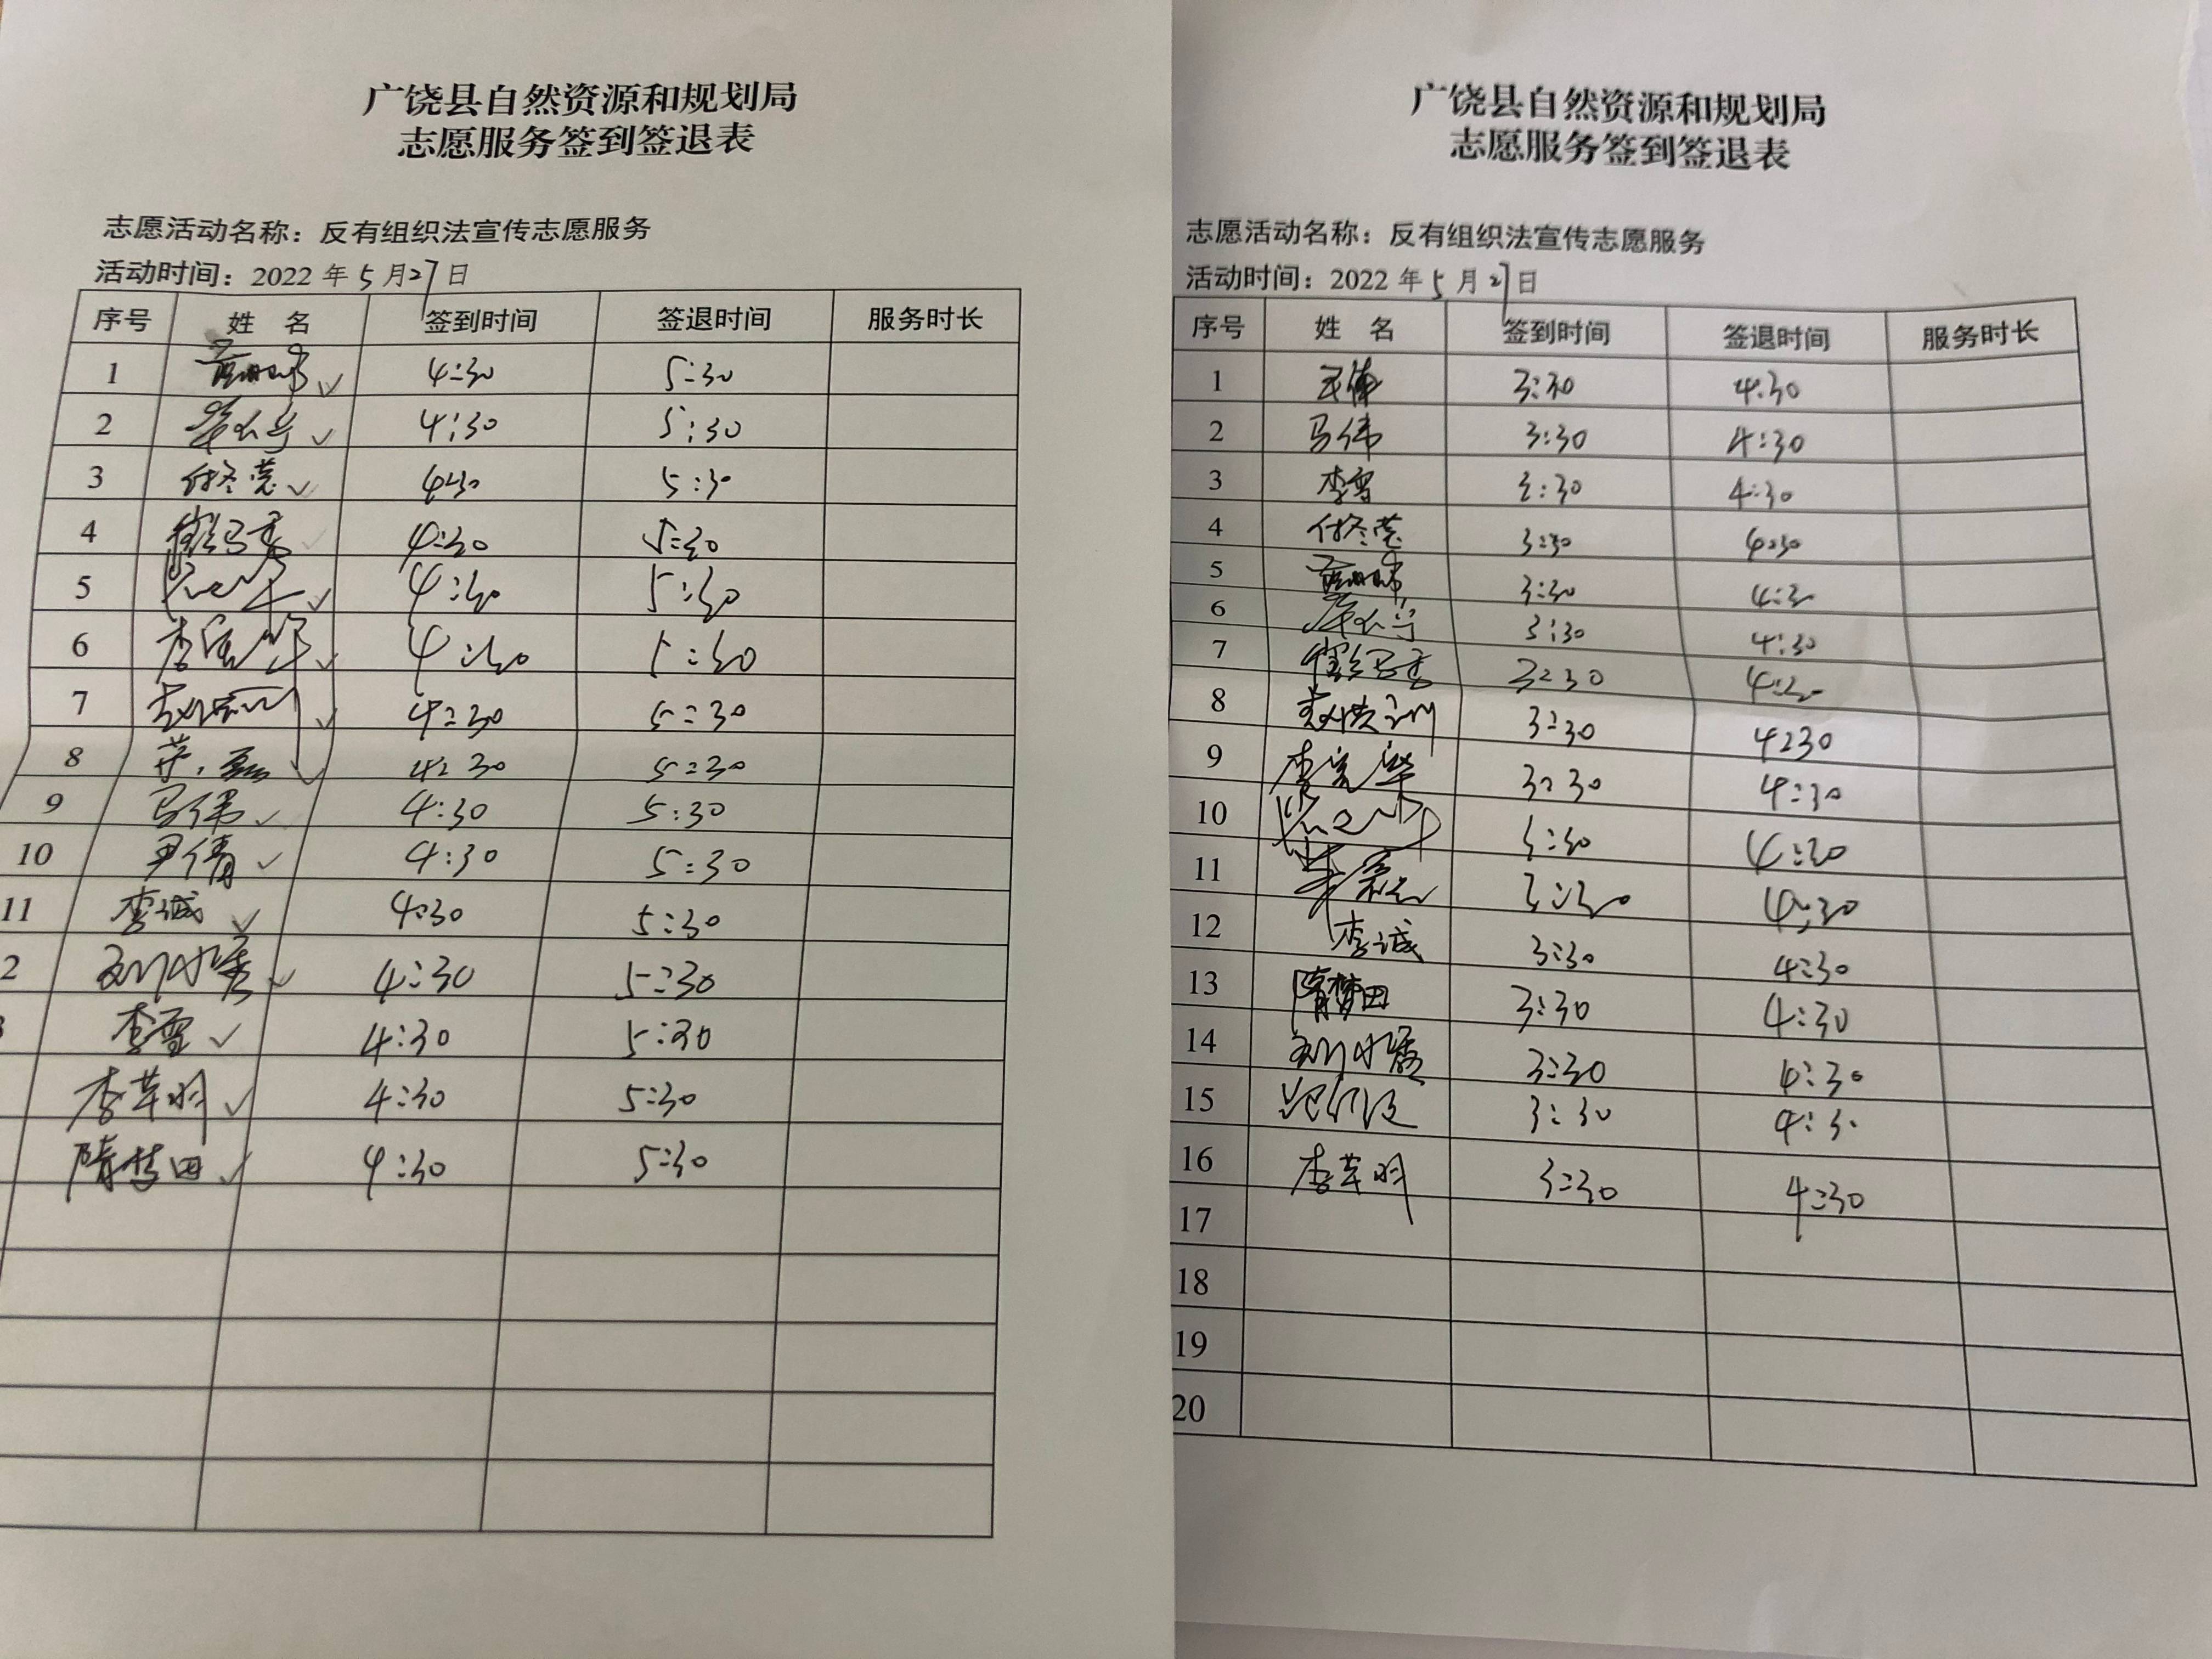 广饶县自然资源和规划局
志愿服务签到签退表
志愿活动名称：反有组织法宣传志愿服务
活动时间：2022 年 5 月 27 日
序号 姓 名 签到时间 签退时间 服务时长
1 4:30 5:30
2 4:30 5:30
3 付冬莞 4:30 5:30
4 4:30 5:30
5 4:30 5:30
6 4:30 5:30
7 4:30 5:30
8 4:30 5:30
9 马伟 4:30 5:30
10 尹倩 4:30 5:30
11 李诚 4:30 5:30
2 4:30 5:30
李雪 4:30 5:30
李苹羽 4:30 5:30
隋梦田 4:30 5:30
广饶县自然资源和规划局
志愿服务签到签退表
志愿活动名称：反有组织法宣传志愿服务
活动时间：2022 年 5 月 27 日
序号 姓 名 签到时间 签退时间 服务时长
1 3:30 4:30
2 马伟 3:30 4:30
3 李雪 3:30 4:30
4 付冬莞 3:30 4:30
5 3:30 4:30
6 3:30 4:30
7 3:30 4:30
8 3:30 4:30
9 3:30 4:30
10 3:30 4:30
11 3:30 4:30
12 李诚 3:30 4:30
13 隋梦田 3:30 4:30
14 3:30 4:30
15 3:30 4:30
16 李苹羽 3:30 4:30
17
18
19
20